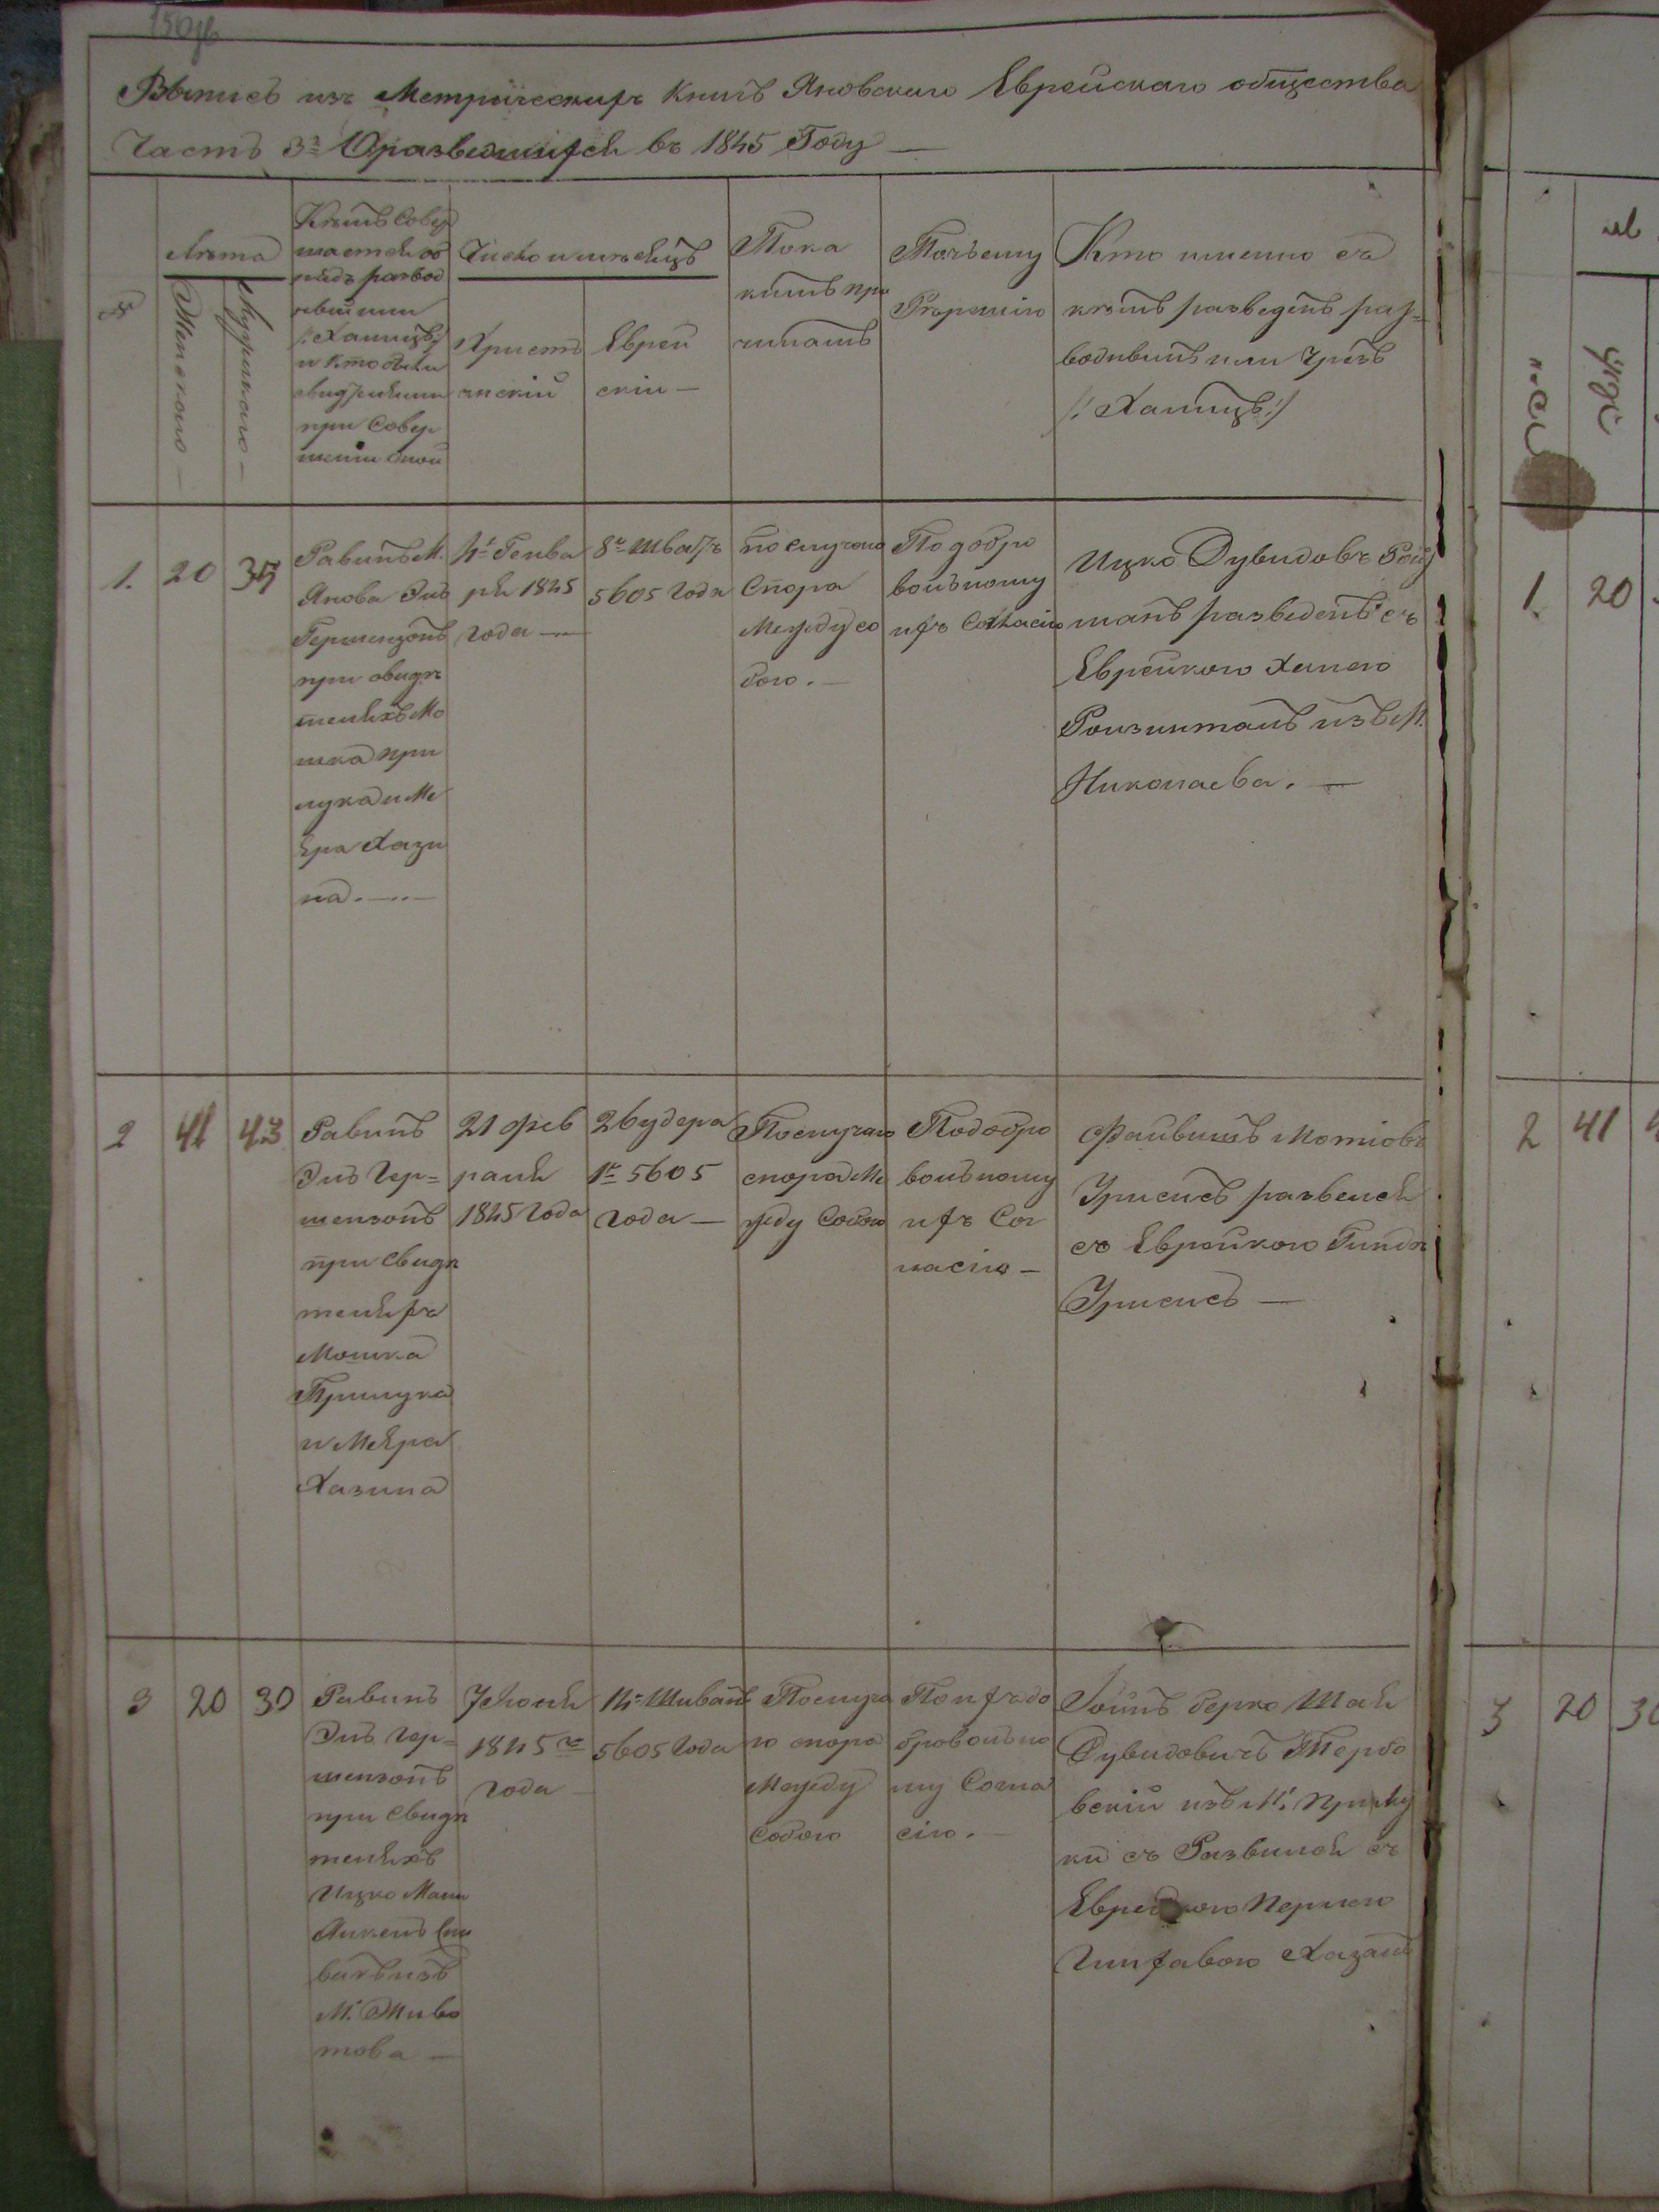 Выпись изъ Метрическихъ Книгъ Яновскаго Еврейскаго общества
Часть 3я О разведшихся въ 1845 Году —
№
Лѣта
Женскаго —
Мужскаго —
Кѣмъ Совер
шается об
рядъ развод
ный или
/:Халицъ:/
и кто были
свидѣтели
при Совер
шеніи оной
Число и мѣсяцъ
Христі
анскій
Еврей
скій —
По ка
кимъ при
чинамъ
По чьему
Рѣшенію
Кто именно съ
кѣмъ разведенъ раз=
водивши или чрезъ
/: Халицъ :/
1.
20
35
Равинъ М.
Янова Эль
Гершензонъ
при свидѣ
теляхъ Мо
шка при
лука и Ме
ера Хази
на. —
4е Генва
ря 1845
года —
8е Швать
5605 года
по случаю
Спора
Между со
бою. —
По добро
вольному
ихъ Согласію
Ицко Дувидовъ Рой
манъ разведенъ съ
Еврейкою Ханею
Ройзиманъ изъ М.
Николаева. —
2
41
43
Равинъ
Эль Гер=
шензонъ
при свидѣ
теляхъ
Мошка
Прилука
и Меера
Хазина
21 фев
раля
1845 года
26 удера
1е 5605
года —
По случаю
спора Ме
жду Собою
По добро
вольному
ихъ Сог
ласію —
Файвишъ Мотіовъ
Урисисъ развелся
съ Еврейкою Гиндя
Урисисъ —
3
20
30
Равинъ
Эль Гер=
шензонъ
при свидѣ
теляхъ
Ицко Мани
изъ
М. Живо
това —
7 Іюня
1845го
года
14е Шиванъ
5605 года
По случа
ю спора
Между
Собою
По ихъ до
бровольно
му Согла
сію. —
Берко Шая
Дувидовичъ
изъ М: Прилу
ки съ Развился съ
Еврейкою Перлею
Хазанъ
1.
20
2
41
3
20